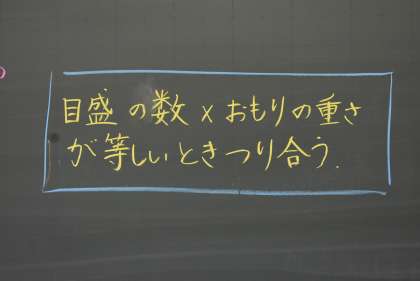 目盛の数×おもりの重さ
が等しいときつり合う.